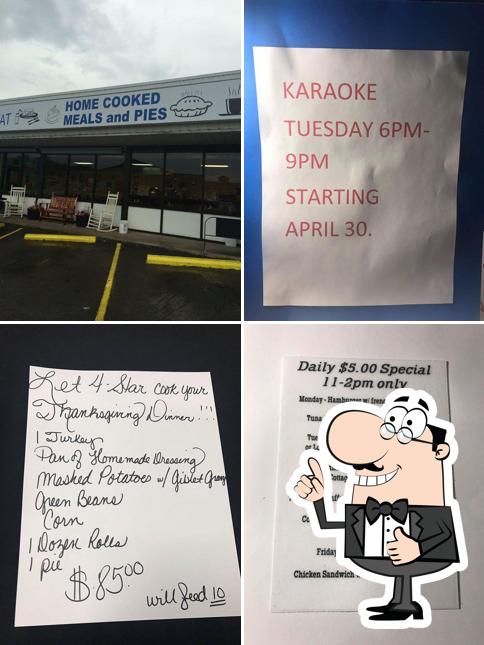 AT
HOME COOKED
MEALS and PIES
KARAOKE
TUESDAY 6PM-
9PM
STARTING
APRIL 30.
Let 4-Star cook your
Thanksgiving Dinner!!!
1 Turkey
Pan of Homemade Dressing
Mashed Potatoes w/ Giblet Gravy
Green Beans
Corn
1 Dozen Rolls
1 pie
$85.00
will feed 10
Daily $5.00 Special
11-2pm only
Monday - Hamburger w/
Chicken Sandwich